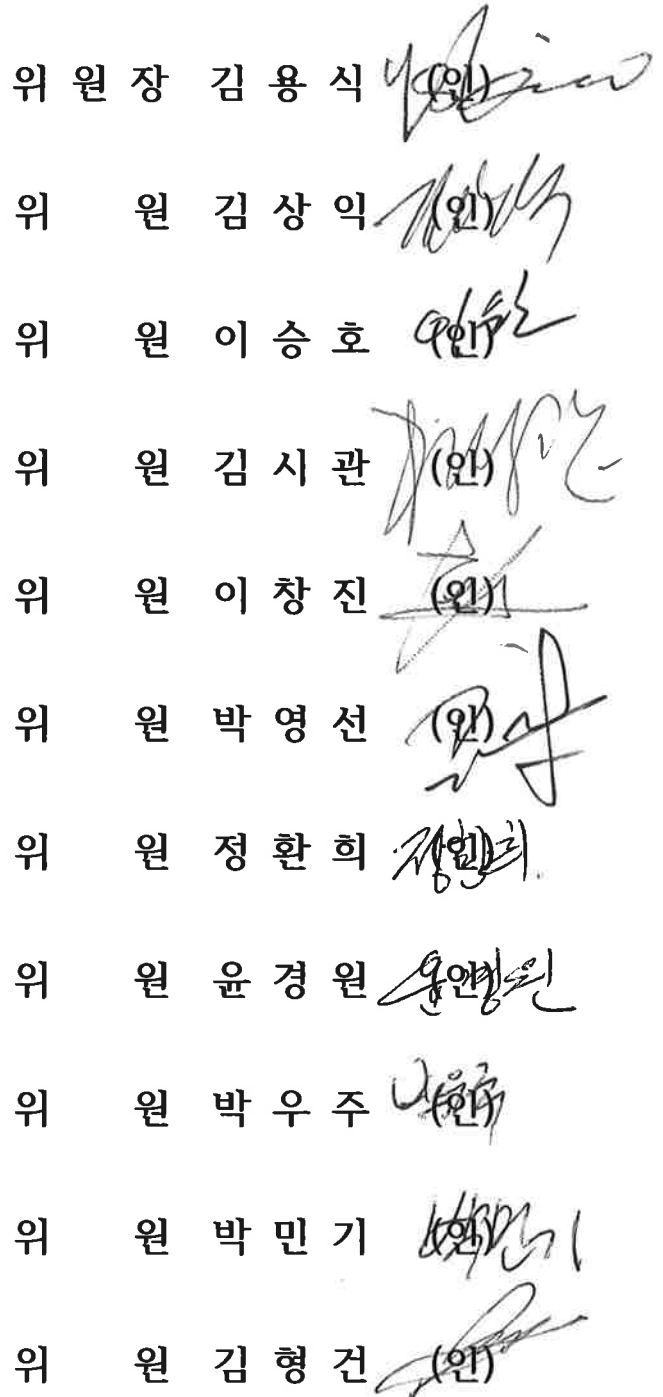 위 원 장 김 용 식 (인)
위 원 김 상 익 (인)
위 원 이 승 호 (인)
위 원 김 시 관 (인)
위 원 이 창 진 (인)
위 원 박 영 선 (인)
위 원 정 환 희 (인)
위 원 윤 경 원 (인)
위 원 박 우 주 (인)
위 원 박 민 기 (인)
위 원 김 형 건 (인)